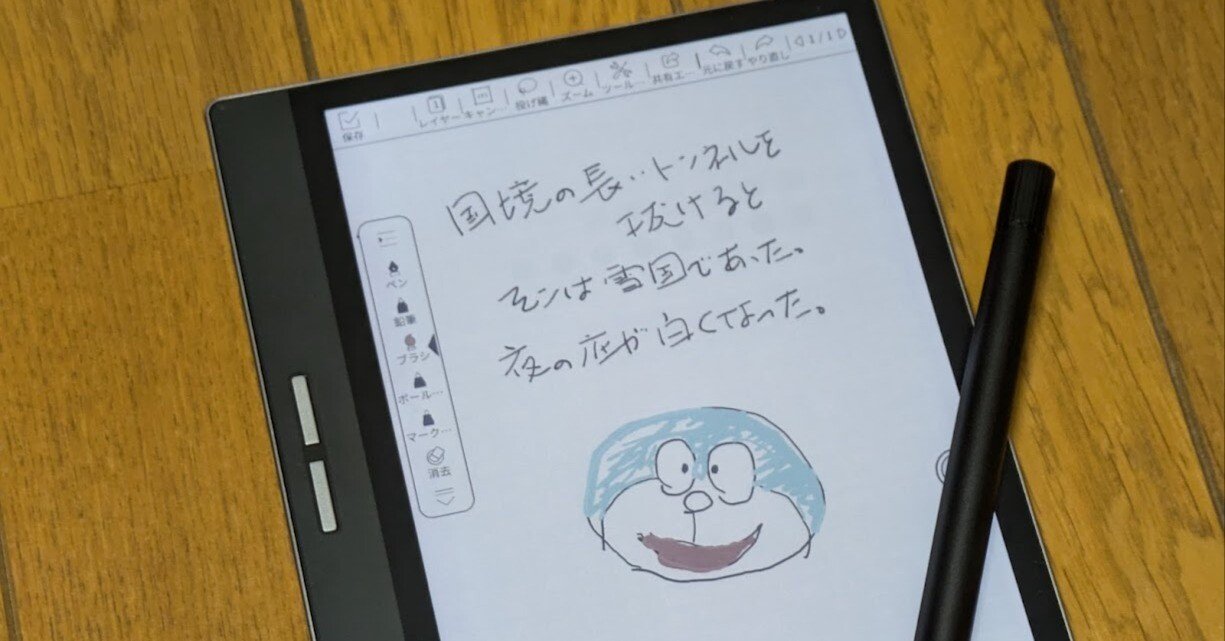 保存
1
レイヤー
キャン…
投げ縄
ズーム
ツール…
共有エ…
元に戻す
やり直し
1/1
国境の長いトンネルを
抜けると
そこは雪国であった。
夜の底が白くなった。
ペン
鉛筆
ブラシ
ボール…
マーク…
消去